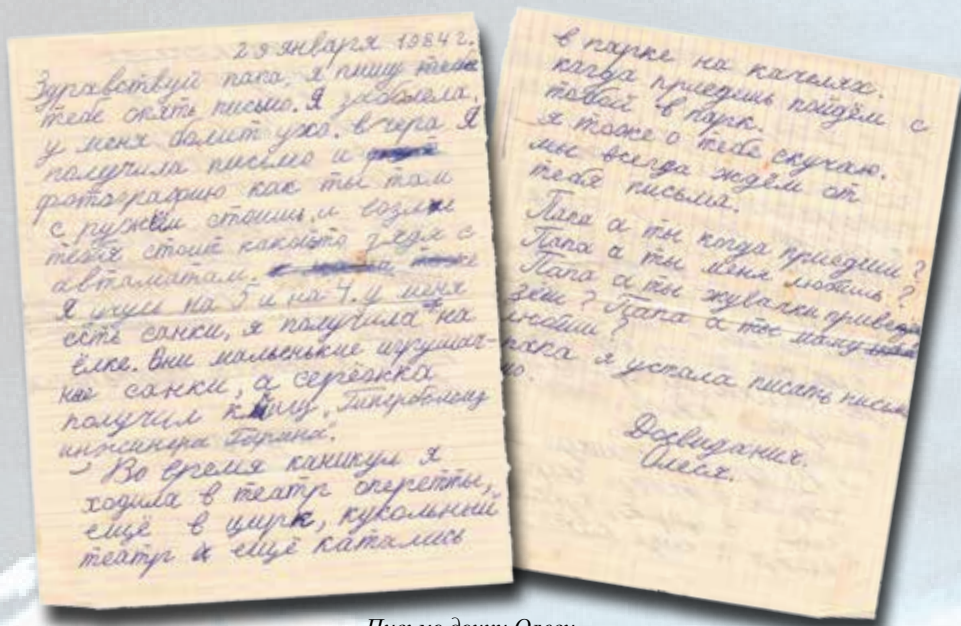 29 января 1984 г.
Здравствуй папа, я пишу
тебе опять письмо. Я заболела,
у меня болит ухо. вчера Я
получила письмо и
фотографию как ты там
с ружьём стоишь, и возле
тебя стоит какойто дядя с
автаматам.
Я учусь на 5 и на 4. у меня
есть санки, я получила на
ёлке. Они маленькие игрушач-
ные санки, а серёжка
получил книгу, "Гиперболоид
инжинера Гарина".
Во время каникул я
ходила в театр оперетты,
ещё в цирк, кукольный
театр и ещё катались
в парке на качелях.
кагда приедишь пойдём с
тобой в парк.
я тоже о тебе скучаю.
мы всегда ждём от
тебя письма.
Папа а ты когда приедиш?
Папа а ты меня любишь?
Папа а ты жувачки привезё
зёш? Папа а ты маму
любиш?
папа я устала писать письм
мо.
Досвидания.
Олеся.
Письмо дочки Олеси